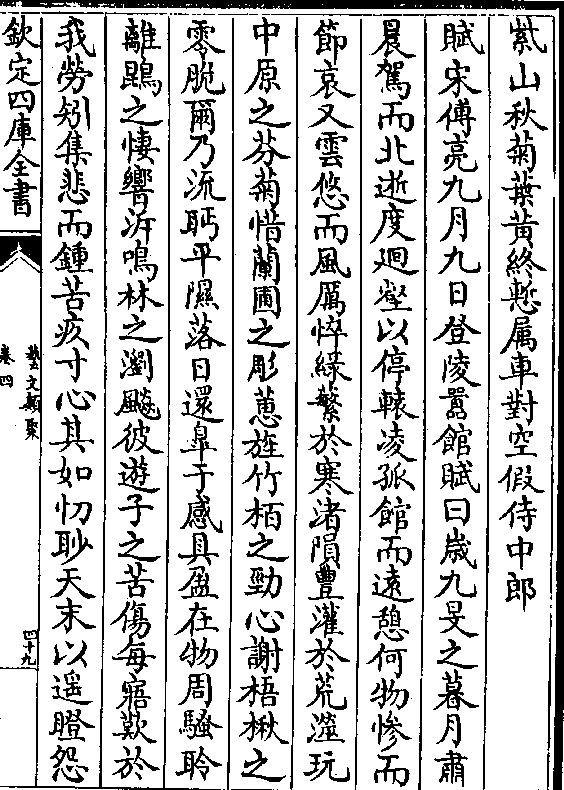 紫山秋菊葉黃終慙属車對空假侍中郎
賦宋傅亮九月九日登陵囂館賦曰歳九旻之暮月肅
晨駕而北逝度迴壑以停轅凌孤館而遠憩何物慘而
節哀又雲悠而風厲悴緑蘩於寒渚隕豐灌於荒澨玩
中原之芬菊惜蘭圃之彫蕙旌竹栢之勁心謝梧楸之
零脫爾乃流眄平隰落日還臯于感具盈在物周騷聆
離鵾之悽響泝鳴林之瀏飈彼遊子之苦傷每寤歎於
我勞矧集悲而鍾苦疚寸心其如忉眇天末以遥瞪怨
欽定四庫全書
藝文類聚
卷四
四十九